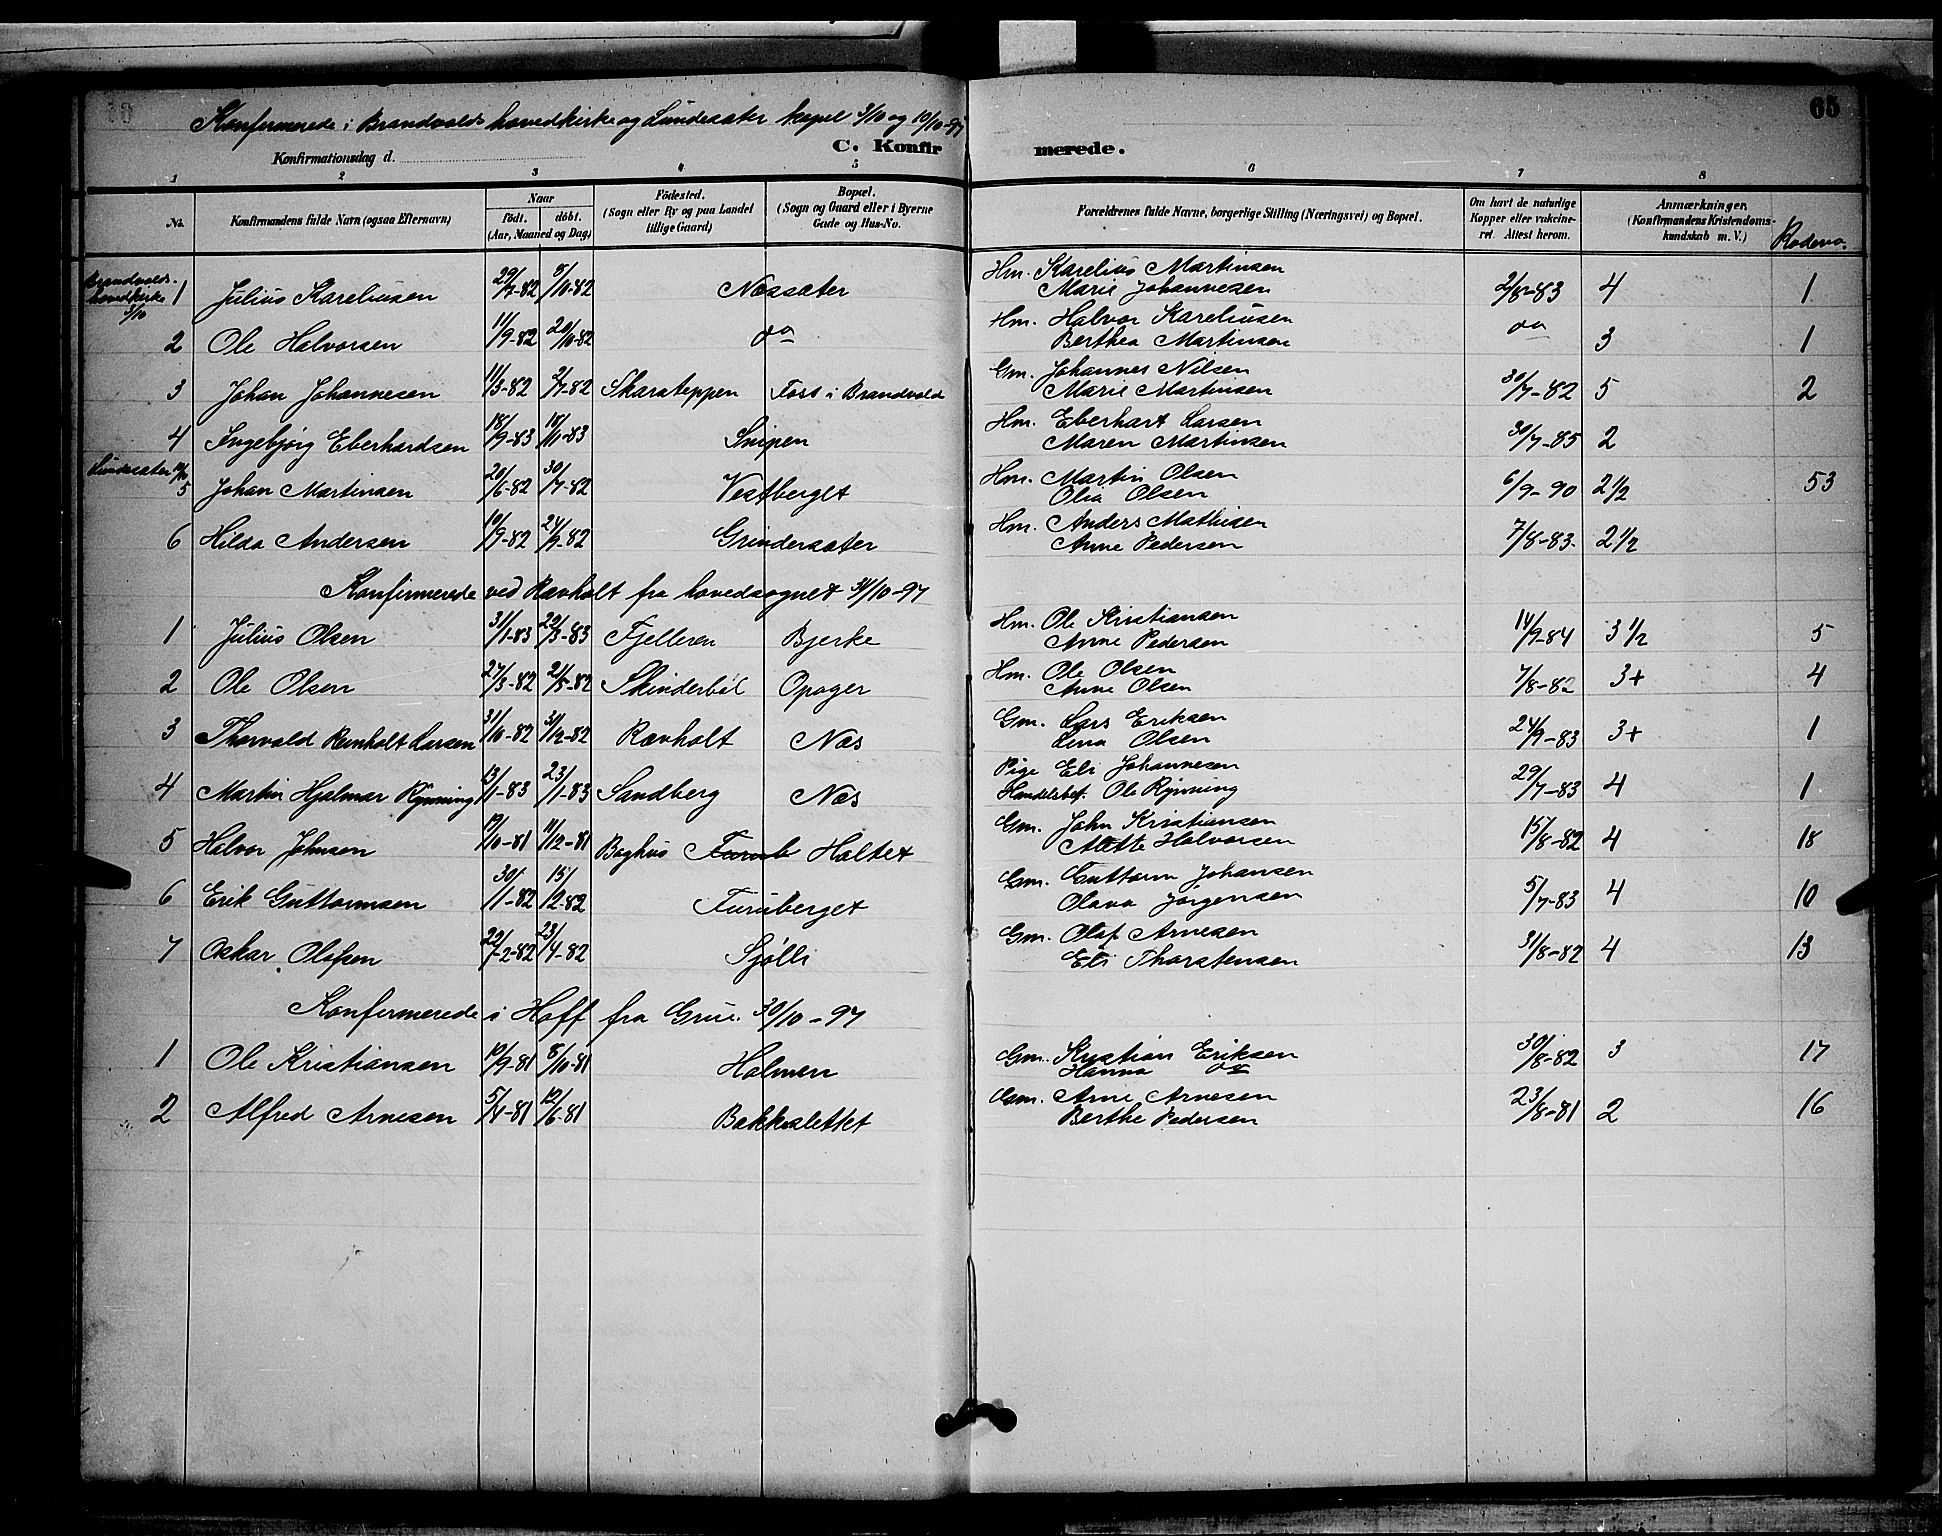 65
Konfirmerede i Brandvolds hovedkirke og Lundersæter kapel 3/10 og 10/10-97
Konfirmationsdag d.
C. Konfirmerede.
1 2 3 4 5 6 7 8
No. Konfirmandens fulde Navn (ogsaa Efternavn) Naar födt. döbt. (Aar, Maaned og Dag) Födested. (Sogn eller By og paa Landet tillige Gaard) Bopæl. (Sogn og Gaard eller i Byerne Gade og Hus-No. Forældrenes fulde Navne, borgerlige Stilling (Næringsvei) og Bopæl. Om havt de naturlige Kopper eller vakcineret. Attest herom. Anmærkninger. (Konfirmandens Kristendomskundskab m. V.) Rodeno.
Brandvolds hovedkirke 3/10
1 Julius Kareliusen 29/7-82 8/10-82 Næssæter Hm. Karelius Martinsen 2/8-83 4 1
Marie Johannesen
2 Ole Halvorsen 11/9-82 20/10-82 do Hm. Halvor Kareliusen do 3 1
Berthea Martinsen
3 Johan Johannesen 11/3-82 2/7-82 Skarateppen Foss i Brandvold Gm. Johannes Nilsen 30/7-82 5 2
Marie Martinsen
4 Ingebjørg Eberhardsen 18/9-83 18/11-83 Snipen Hm. Eberhart Larsen 30/7-85 2
Maren Martinsen
Lundersæter 10/10
5 Johan Martinsen 20/6-82 30/7-82 Vestberget Hm. Martin Olsen 6/9-90 2 1/2 53
Olia Olsen
6 Hilda Andersen 10/9-82 24/9-82 Grindersæter Hm. Anders Mathisen 7/8-83. 2 1/2
Anne Pedersen
Konfirmerede ved Ravholt fra hovedsognet 31/10-97
1 Julius Olsen 31/1-83 29/3-83 Fjelleren Bjerke Hm. Ole Kristiansen 14/9-84 3 1/2 5
Anne Pedersen
2 Ole Olsen 27/3-82 21/5-82 Skinderböl Opager Hm. Ole Olsen 7/8-82 3+ 4
Anne Olsen
3 Thorvald Reinholt Larsen 31/10-82 31/12-82 Rævholt Næs Gm. Lars Eriksen 24/9-83 3+ 1
Lina Olsen
4 Martin Hjalmar Rynning 13/1-83 23/1-83 Sandberg Næs Pige Eli Johannesen 29/7-83 4 1
Handelsbet. Ole Rynning
5 Halvor Johnsen 19/10-81 11/12-81 Baghus Furub Holtet Gm. John Kristiansen 15/8-82 4 18
Alette Halvorsen
6 Erik Guttormsen 30/1-82 15/12-82 Furuberget Gm. Guttorm Johansen 5/7-83 4 10
Olava Jørgensen
7 Oskar Olafsen 22/2-82 23/4-82 Sjølli Gm. Olaf Arnesen 31/8-82 4 13
Eli Thorstensen
Konfirmerede i Hoff fra Grue. 30/10-97
1 Ole Kristiansen 19/9-81 8/10-81 Holmen Gm. Kristian Eriksen 30/8-82 3 17
Hanna do
2 Alfred Arnesen 5/4-81 12/6-81 Bakkeslettet Gm. Arne Arnesen 23/8-81 2 16
Berthe Pedersen